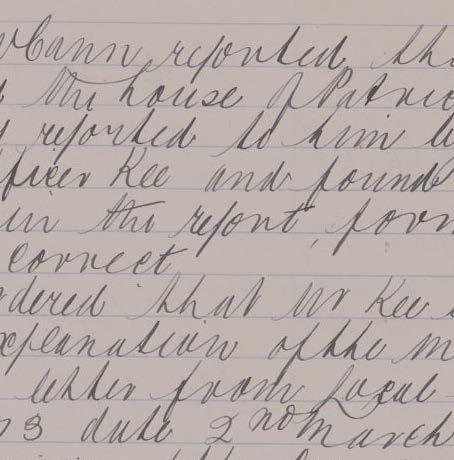 Cann reported, tha
the house of Patric
reported to him b
fficer Kee and found
in the report, form
correct
dered that Mr Kee
xplanation of the m
letter from Local
3 date 2nd March